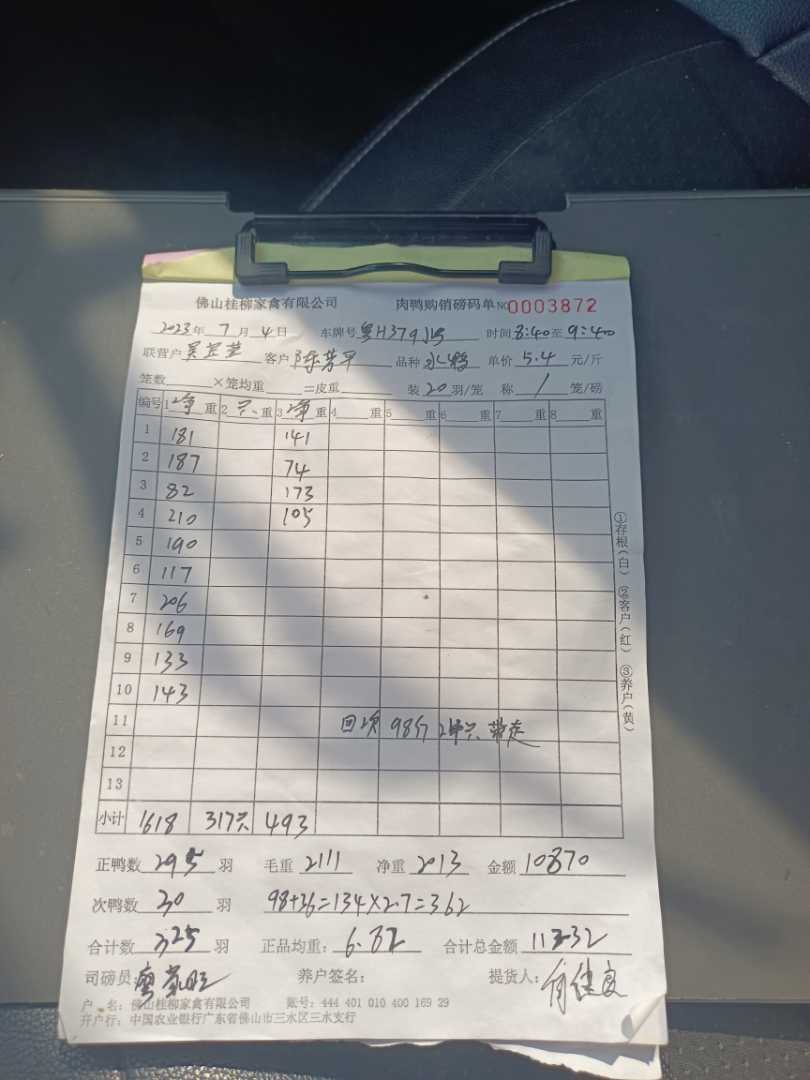 佛山桂柳家禽有限公司 肉鸭购销磅码单 NO 0003872
2023年 7月 4日 车牌号 粤H379 时间 8:40至9:40
联营户 客户 品种 单价 5.4 元/斤
笼数 ×笼均重 =皮重 装 20 羽/笼 称 / 笼/磅
编号 1 净 重 2 只 重 3 净 重 4 重 5 重 6 重 7 重 8 重
1 181 141
2 187 74
3 82 173
4 210 105
5 190
6 117
7 206
8 169
9 133
10 143
11 回次 98斤 只 带走
12
13
小计 1618 317只 493
正鸭数 295 羽 毛重 2111 净重 2013 金额 10870
次鸭数 30 羽 98+36=134×2.7=362
合计数 325 羽 正品均重: 6.82 合计总金额 11232
司磅员: 养户签名: 提货人:
户 名: 佛山桂柳家禽有限公司 账号: 444 401 010 400 169 29
开户行: 中国农业银行广东省佛山市三水区三水支行
①存根(白) ②客户(红) ③养户(黄)